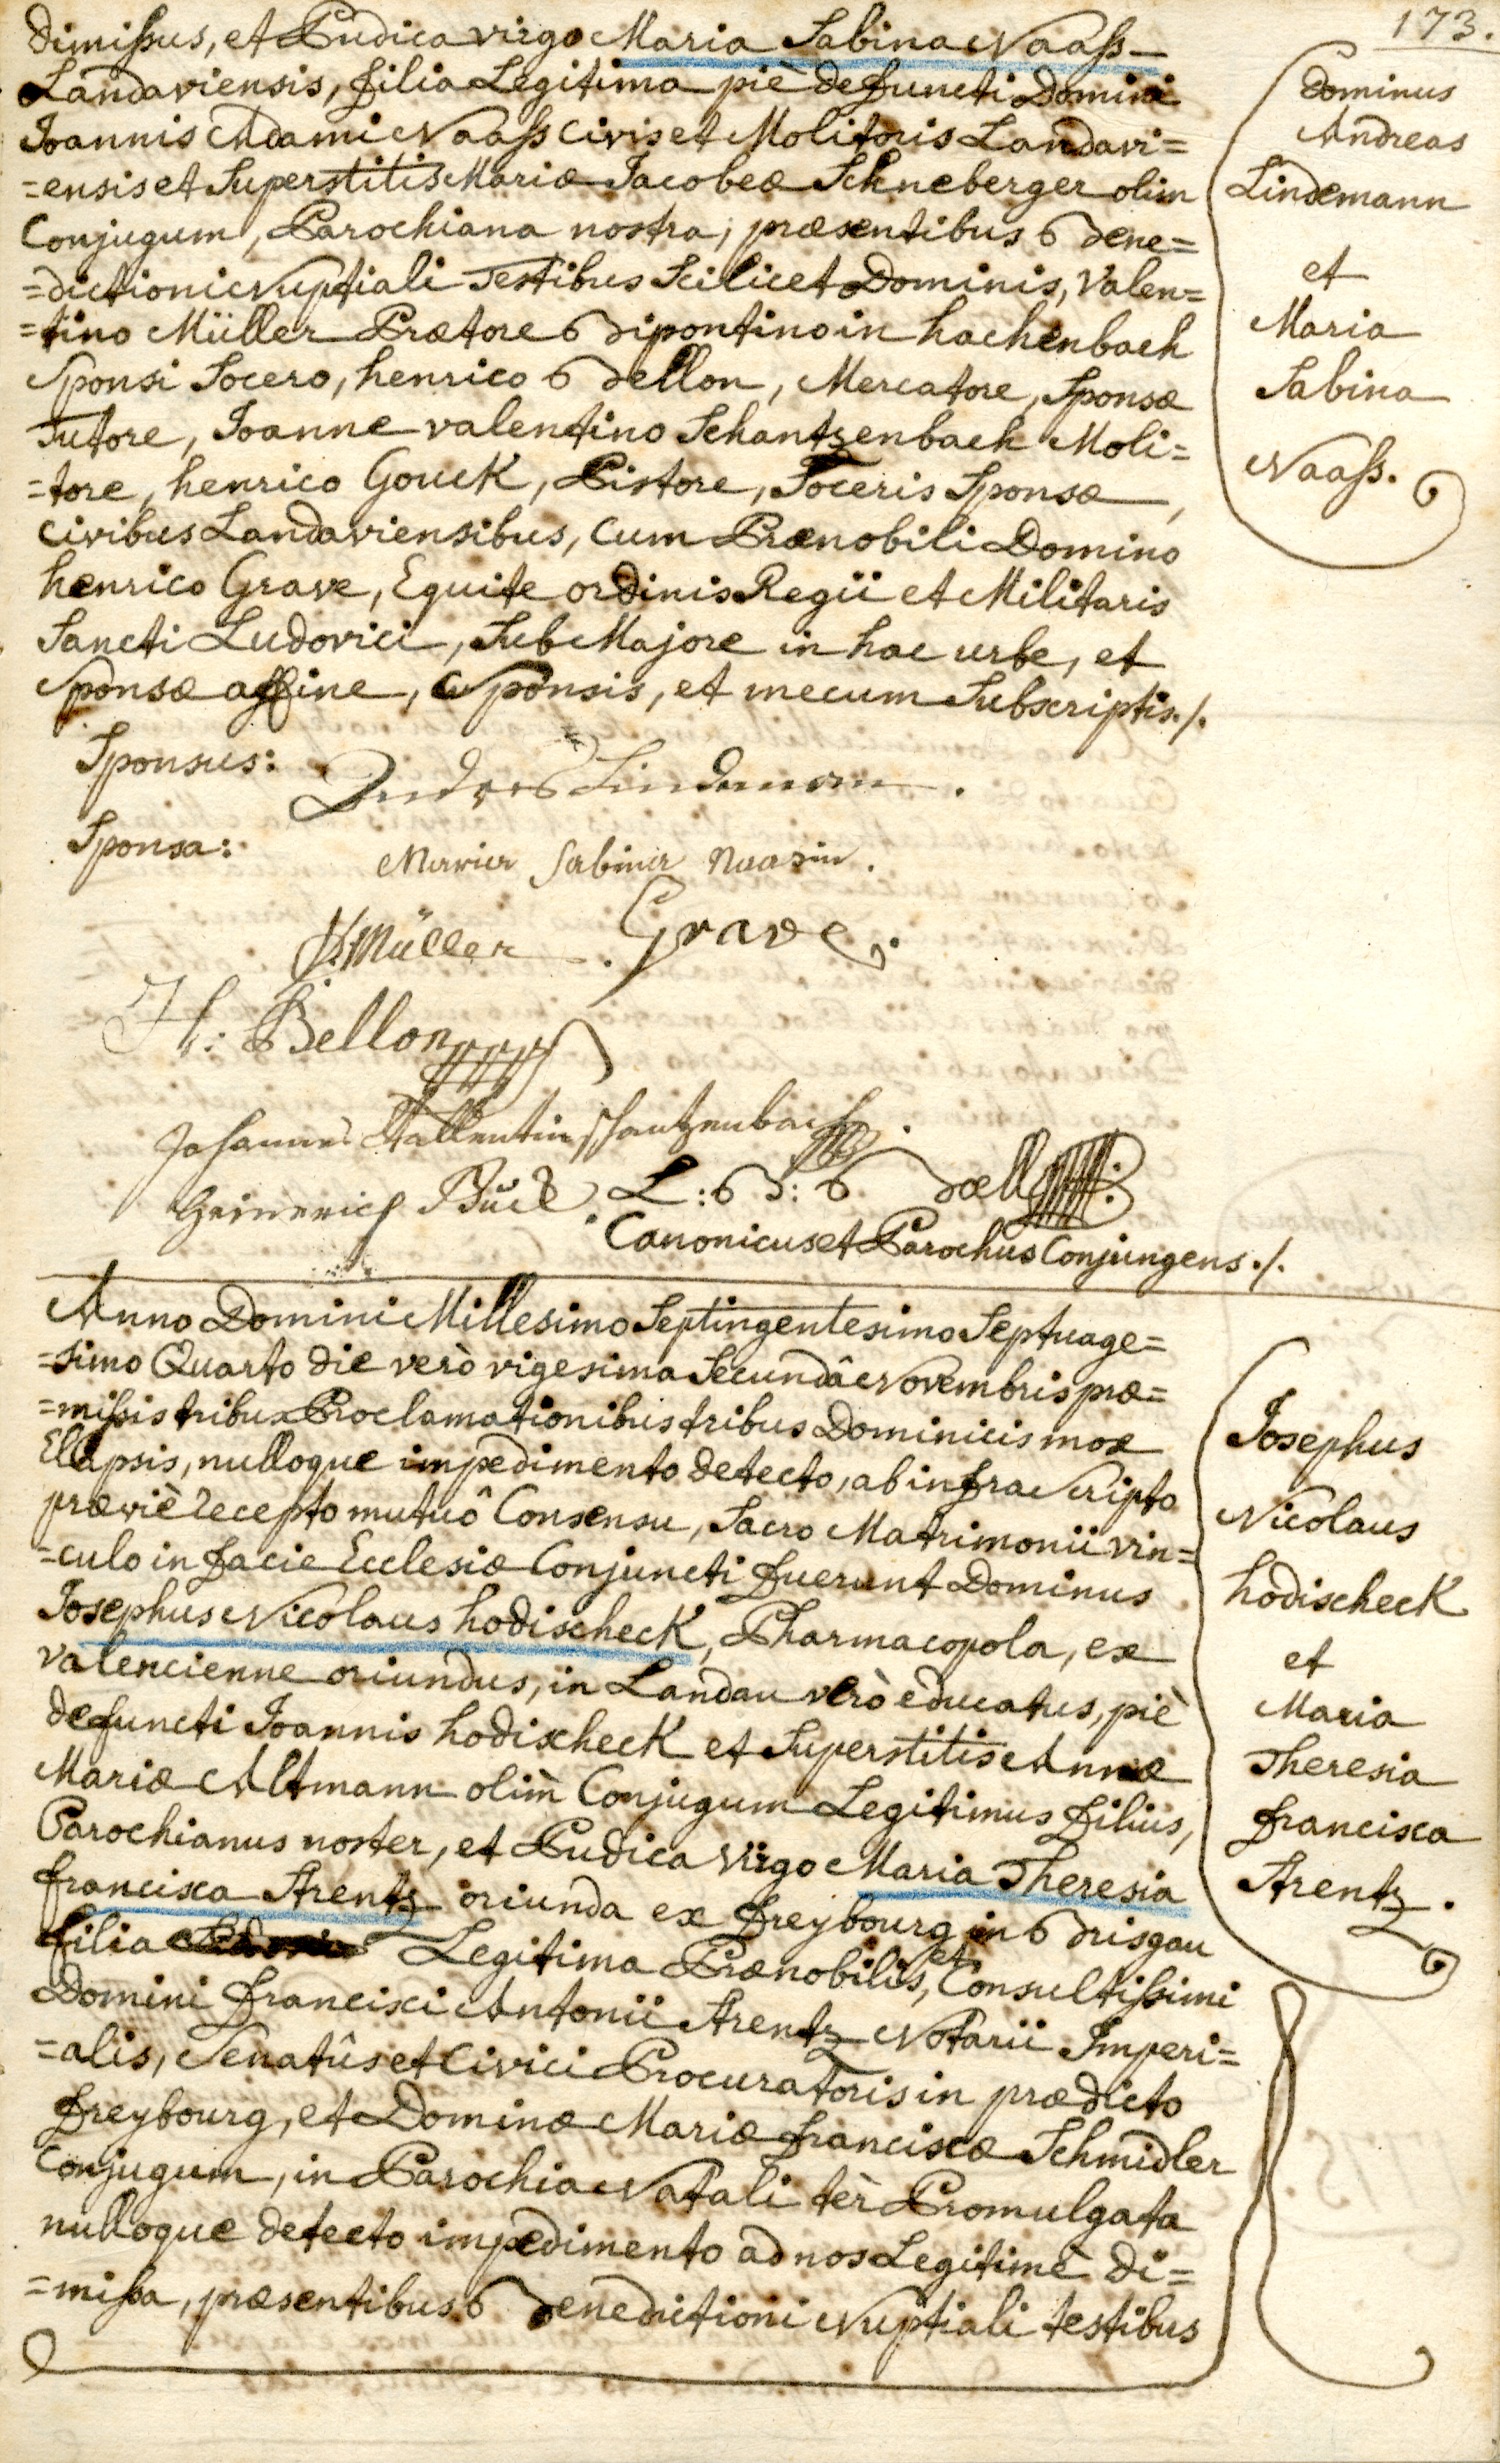 173.
dimissus, et Pudica virgo Maria Sabina Naass
Landaviensis, filia Legitima piè defuncti Domini
Joannis Adami Naass Civis et Molitoris Landavi=
=ensis et Superstitis Mariæ Jacobeæ Schneberger olim
Conjugum, Parochiana nostra, præsentibus Bene=
=dictioni Nuptiali Testibus Scilicet Dominis, Valen=
=tino Müller Prætore Bipontino in hachenbach
Sponsi Socero, henrico Bellon, Mercatore, Sponsæ
Tutore, Joanne valentino Schantzenbach Moli=
=tore, henrico Gouck, Pistore, Soceris Sponsæ,
Civibus Landaviensibus, Cum Prænobili Domino
henrico Grave, Equite ordinis Regii et Militaris
Sancti Ludovici, Sub Majore in hac urbe, et
Sponsæ affine, Sponsis, et mecum Subscriptis./.
Dominus
Andreas
Lindemann
et
Maria
Sabina
Naass.
Sponsus: Andres Lindemann.
Sponsa: Maria Sabina Naasin.
Müller. Grave.
H: Bellon
Johannes Vallentin Schantzenbach.
Heinerich L: B: B
Canonicus et Parochus Conjungens./.
Anno Domini Millesimo Septingentesimo Septuage=
=simo Quarto die verò vigesima Secundâ Novembris præ=
=missis tribus Proclamationibus tribus Dominicis mox
Elapsis, nulloque impedimento detecto, ab infra Scripto
præviè recepto mutuô Consensu, Sacro Matrimonii vin=
=culo in facie Ecclesiæ Conjuncti fuerunt Dominus
Josephus Nicolaus hodischeck, Pharmacopola, ex
valencienne oriundus, in Landau verò educatus, piè
defuncti Joannis hodischeck et Superstitis Annæ
Mariæ Altmann olim Conjugum Legitimus filius,
Parochianus noster, et Pudica Virgo Maria Theresia
francisca Arentz oriunda ex freybourg in Brisgau
filia Legitima Prænobilis, et Consultissimi
Domini francisci Antonii Arentz Notarii Imperi=
=alis, Senatûs et Civici Procuratoris in prædicto
freybourg, et Dominæ Mariæ franciscæ Schmidler
Conjugum, in Parochia Natali tèr Promulgata
nulloque detecto impedimento ad nos Legitimè di=
=missa, præsentibus Benedictioni Nuptiali testibus
Josephus
Nicolaus
hodischeck
et
Maria
Theresia
francisca
Arentz.